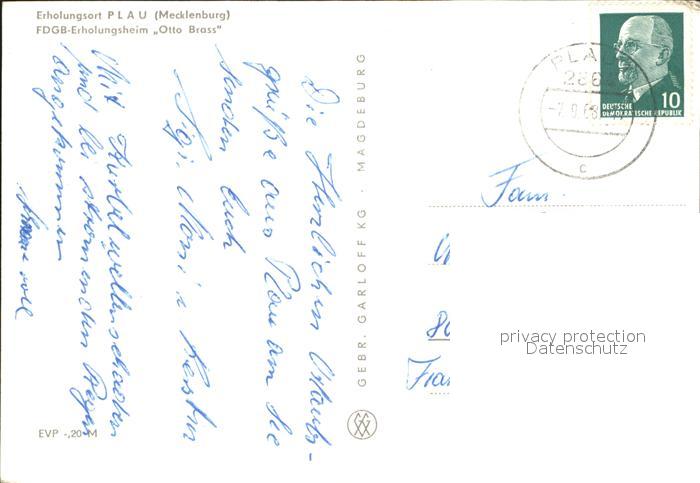 Erholungsort PLAU (Mecklenburg)
FDGB-Erholungsheim „Otto Brass"
Die herzlichen Urlaubs-
grüße aus Plau am See
senden Euch
Moni u. Kerstin
Mit Kurbelwellenschaden
und bei strömenden Regen
angekommen
EVP -,20 M
GEBR. GARLOFF KG · MAGDEBURG
PLAU
C
10
DEUTSCHE
DEMOKRATISCHE REPUBLIK
Fam.
privacy protection
Datenschutz